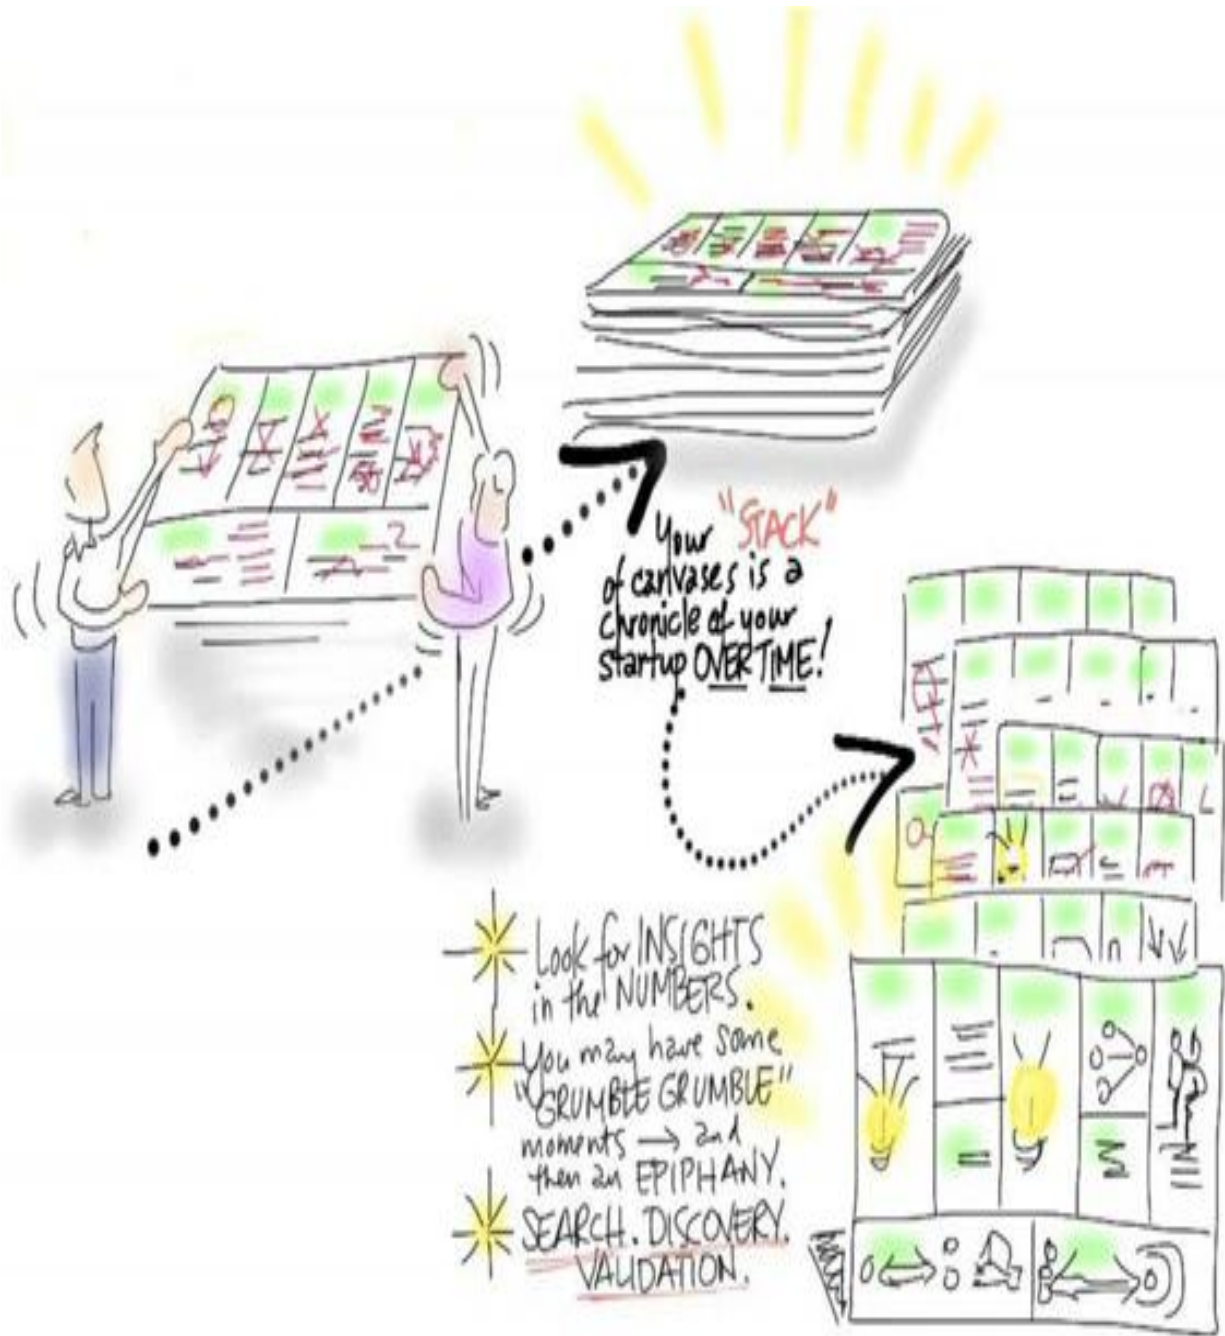 Your "STACK"
of canvases is a
chronicle of your
startup OVER TIME!
Look for INSIGHTS
in the NUMBERS.
You may have some
"GRUMBLE GRUMBLE"
moments → and
then an EPIPHANY.
SEARCH. DISCOVERY.
VALIDATION.